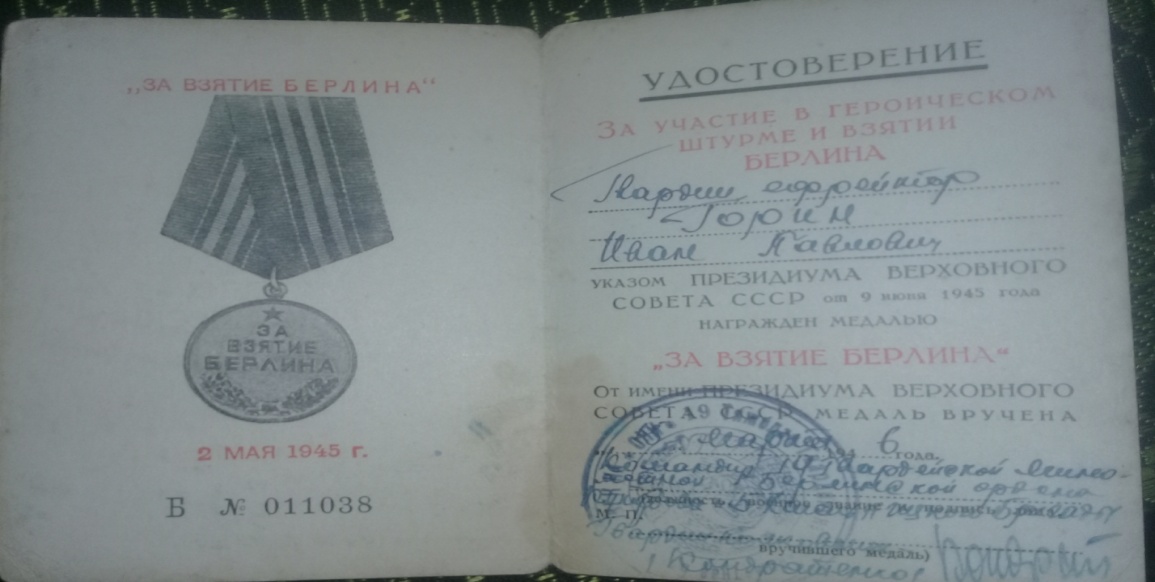 „ЗА ВЗЯТИЕ БЕРЛИНА“
ЗА
ВЗЯТИЕ
БЕРЛИНА
2 МАЯ 1945 г.
Б № 011038
УДОСТОВЕРЕНИЕ
ЗА УЧАСТИЕ В ГЕРОИЧЕСКОМ
ШТУРМЕ И ВЗЯТИИ
БЕРЛИНА
Гвардии ефрейтор
Горин
Иван Павлович
УКАЗОМ ПРЕЗИДИУМА ВЕРХОВНОГО
СОВЕТА СССР от 9 июня 1945 года
НАГРАЖДЕН МЕДАЛЬЮ
„ЗА ВЗЯТИЕ БЕРЛИНА“
ОТ ИМЕНИ ПРЕЗИДИУМА ВЕРХОВНОГО
СОВЕТА СССР МЕДАЛЬ ВРУЧЕНА
марта 194 6 года.
Командир 19 Гвардейской Мино-
метной Берлинской ордена
М. П.
Гвардии
вручившего медаль)
Кондратенко